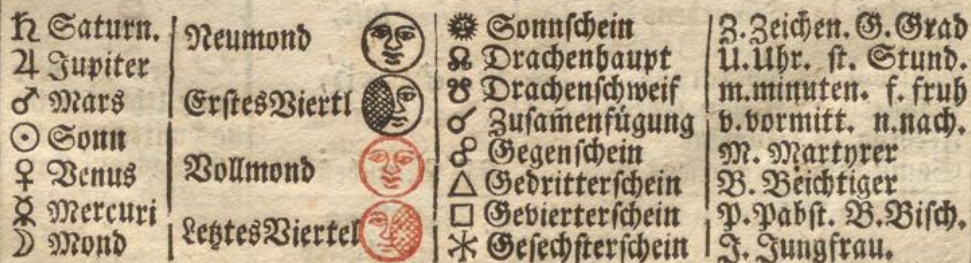 ♄ Saturn.
♃ Jupiter
♂ Mars
☉ Sonn
♀ Venus
☿ Mercuri
☽ Mond
Neumond
ErstesViertl
Vollmond
LetztesViertel
☼ Sonnſchein
☊ Drachenhaupt
☋ Drachenſchweif
☌ Zuſam̃enfügung
☍ Gegenſchein
△ Gedritterſchein
□ Gevierterſchein
⚹ Geſechſterſchein
Z. Zeichen. G. Grad
U. Uhr. ſt. Stund.
m. minuten. f. fruh
v. vormitt. n. nach.
M. Martyrer
B. Beichtiger
P. Pabſt. B. Biſch.
J. Jungfrau.